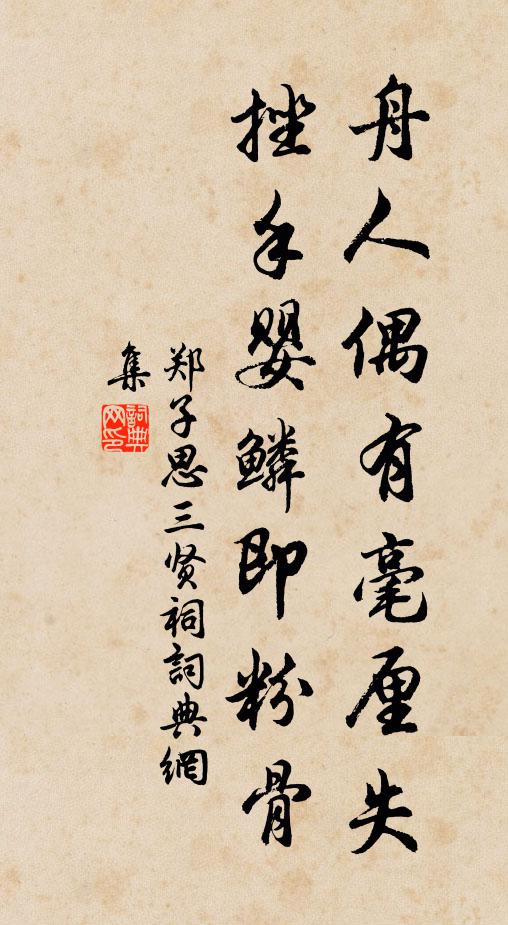 舟人偶有毫厘失
挫手婴鳞即粉骨
郑子思三贤祠詞典網
集
詞典网印